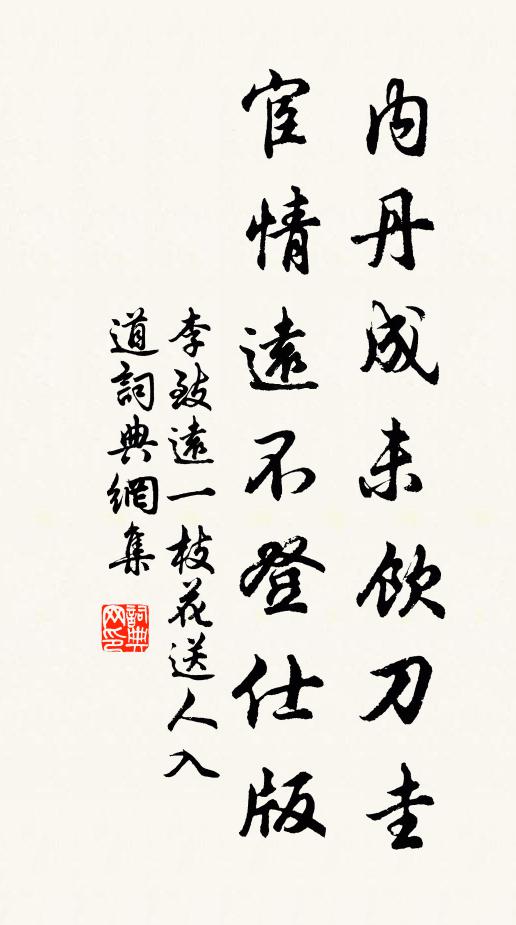 内丹成未飲刀圭
宦情遠不登仕版
李致遠一枝花送人入
道詞典網集
詞典网印